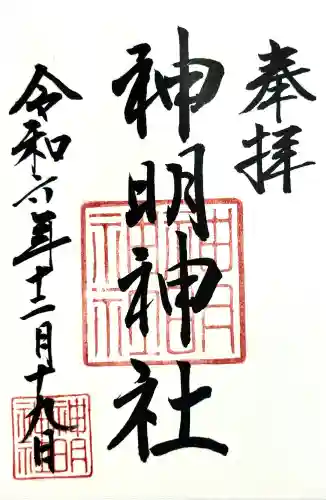 奉拝
神明神社
令和六年十二月十九日
神明
神社
神明
神社